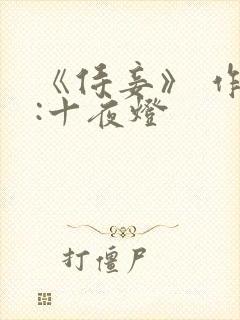 《侍妾》 作
:十夜燈
打僵尸